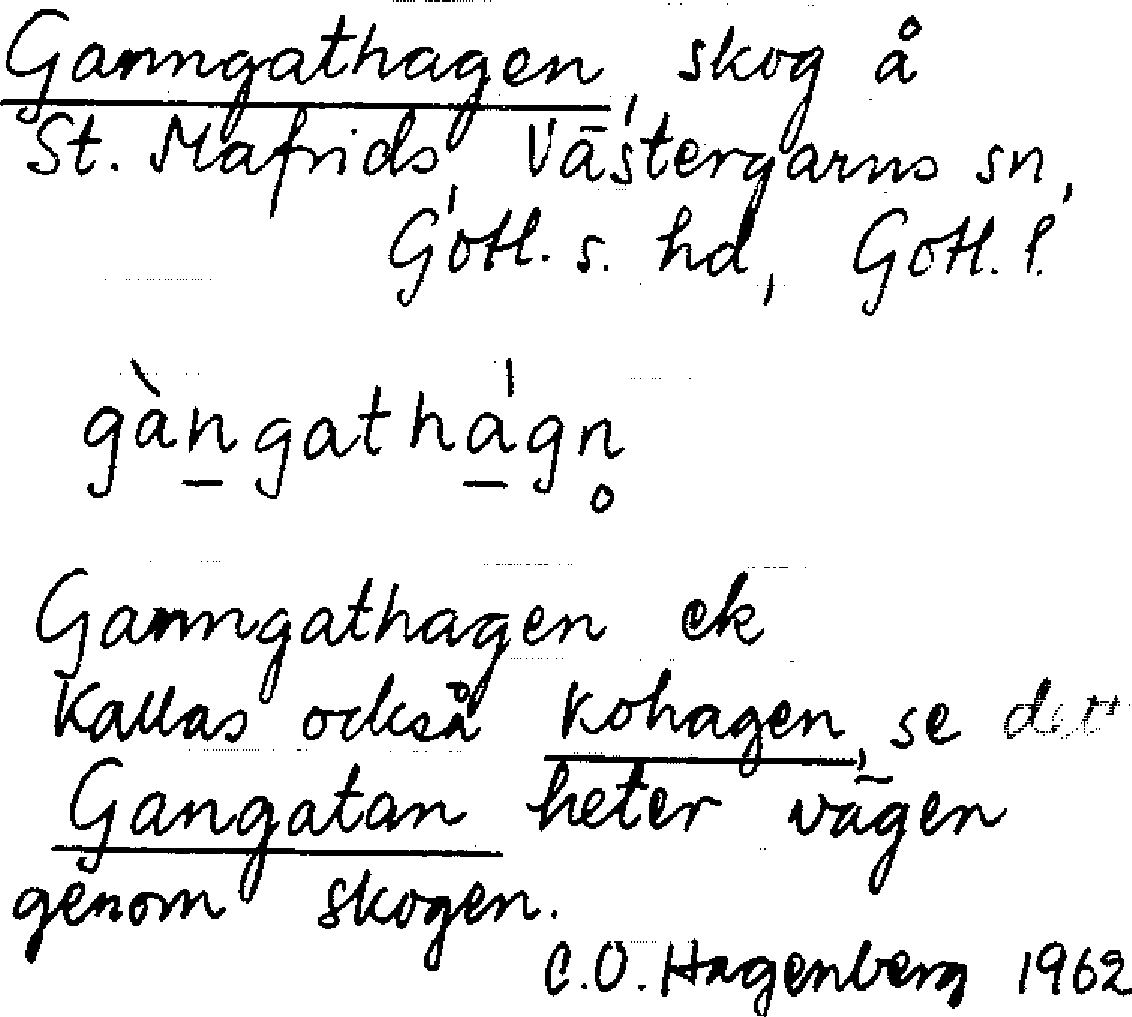 Gamngathagen, skog å
St. Mafrids, Västergarns sn,
Gotl. s. hd, Gotl. l.
gàn̲gathá̲gn̥
Gamngathagen ek
kallas också Kohagen, se
Gangatan heter vägen
genom skogen.
C.O. Hagenberg 1962